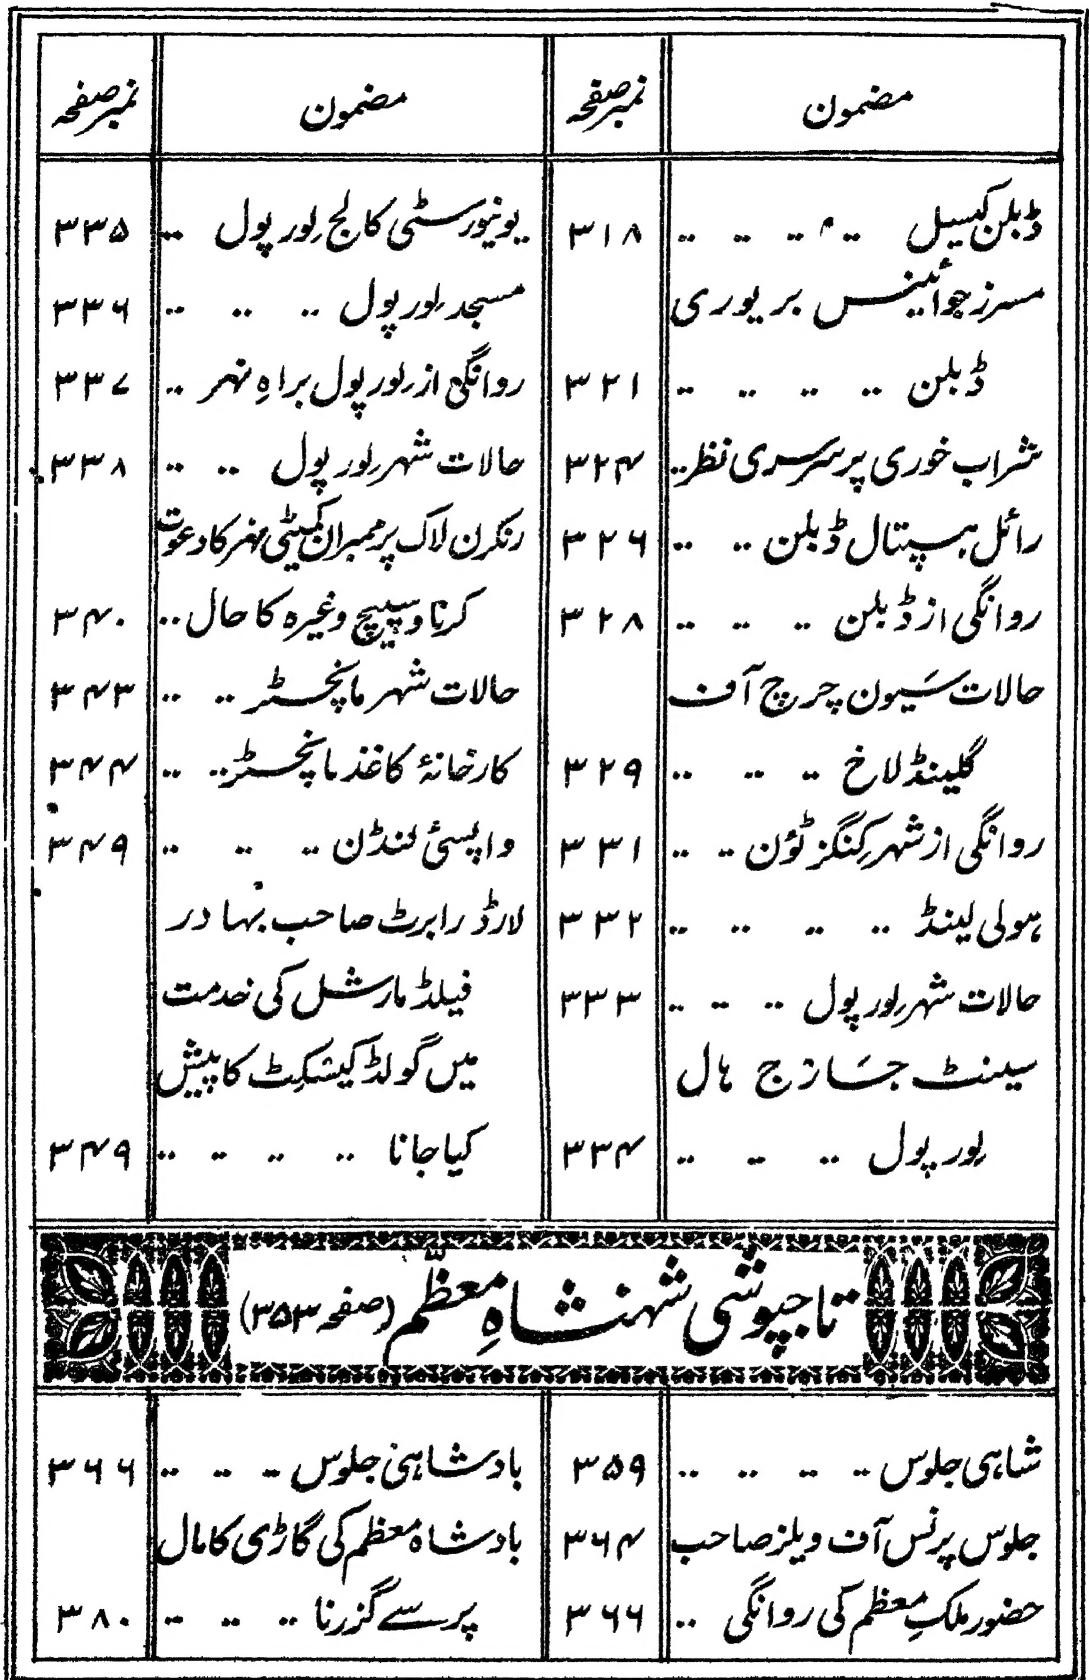 مضمون نمبر صفحہ
ڈبلن کیسیل ۔۔ ۔۔ ۔۔ ۔۔ ۳۱۸
مسرز جوائینس بریوری
ڈبلن ۔۔ ۔۔ ۔۔ ۔۔ ۳۲۱
شراب خوری پر سرسری نظر ۔۔ ۳۲۴
رائل ہسپتال ڈبلن ۔۔ ۔۔ ۳۲۶
روانگی از ڈبلن ۔۔ ۔۔ ۔۔ ۳۲۸
حالات سَیون چرچ آف
گلینڈلاخ ۔۔ ۔۔ ۔۔ ۳۲۹
روانگی از شہر کِنگز ٹؤن ۔۔ ۔۔ ۳۳۱
ہولی لینڈ ۔۔ ۔۔ ۔۔ ۔۔ ۳۳۲
حالات شہر لِورپول ۔۔ ۔۔ ۔۔ ۳۳۳
سینٹ جارج ہال
لِورپول ۔۔ ۔۔ ۔۔ ۳۳۴
مضمون نمبر صفحہ
یونیورسٹی کالج لِورپول ۔۔ ۳۳۵
مسجد لِورپول ۔۔ ۔۔ ۔۔ ۳۳۶
روانگی از لِورپول براہِ نہر ۔۔ ۳۳۷
حالات شہر لِورپول ۔۔ ۔۔ ۳۳۸
رنکرن لاک پر ممبران کمیٹی نہر کا دعوت
کرنا و سپیچ وغیرہ کا حال ۔۔ ۳۴۰
حالات شہر مانچسٹر ۔۔ ۔۔ ۳۴۳
کارخانۂ کاغذ مانچسٹر ۔۔ ۔۔ ۳۴۴
واپسئ لنڈن ۔۔ ۔۔ ۔۔ ۳۴۹
لارڈ رابرٹ صاحب بہادر
فیلڈ مارشل کی خدمت
میں گولڈ کیسکٹ کا پیش
کیا جانا ۔۔ ۔۔ ۔۔ ۔۔ ۳۴۹
تاجپوشی شہنشاہِ معظّم (صفحہ ۳۵۳)
شاہی جلوس ۔۔ ۔۔ ۔۔ ۔۔ ۳۵۹
جلوس پرنس آف ویلز صاحب ۳۶۴
حضور ملکِ معظم کی روانگی ۔۔ ۳۶۶
بادشاہی جلوس ۔۔ ۔۔ ۔۔ ۳۶۶
بادشاہ معظم کی گاڑی کا مال
پر سے گزرنا ۔۔ ۔۔ ۔۔ ۳۸۰